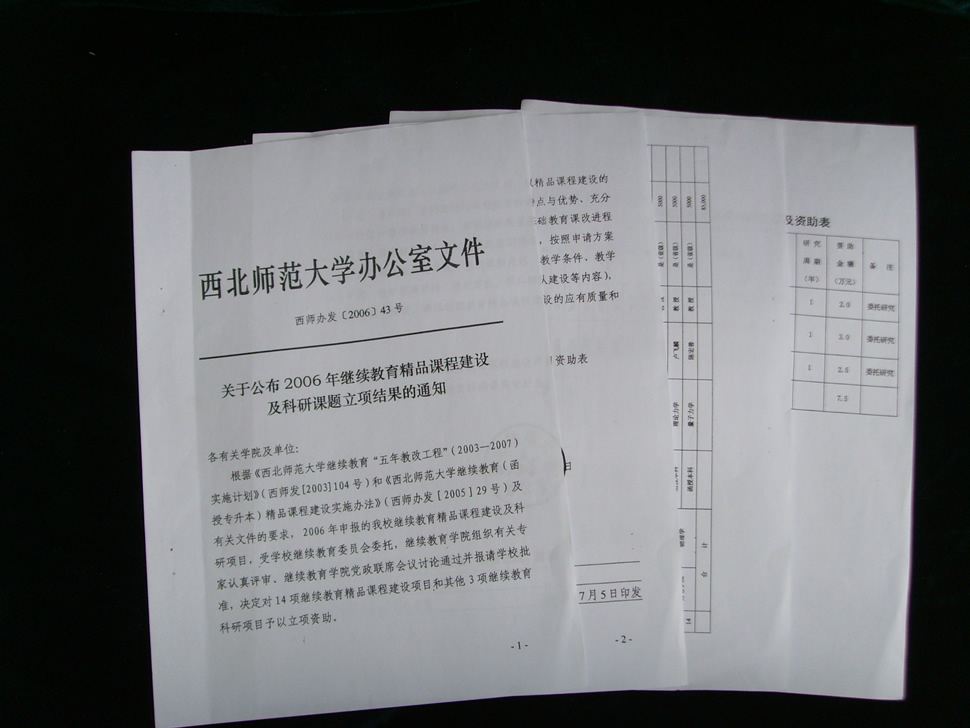 西北师范大学办公室文件
西师办发〔2006〕43 号
关于公布 2006 年继续教育精品课程建设
及科研课题立项结果的通知
各有关学院及单位:
根据《西北师范大学继续教育“五年教改工程”(2003—2007)
实施计划》(西师发[2003]104 号)和《西北师范大学继续教育(函
授专升本)精品课程建设实施办法》(西师办发[2005]29 号)及
有关文件的要求,2006 年申报的我校继续教育精品课程建设及科
研项目,受学校继续教育委员会委托,继续教育学院组织有关专
家认真评审、继续教育学院党政联席会议讨论通过并报请学校批
准,决定对 14 项继续教育精品课程建设项目和其他 3 项继续教育
科研项目予以立项资助。
-1-
精品课程建设的
点与优势、充分
础教育课改进程
,按照申请方案
教学条件、教学
建设等内容),
设的应有质量和
资助表
日
7月5日印发
-2-
5000 5000 5000 85,000
是(省级) 是(省级) 是(省级)
教授 教授
卢飞麟
理论力学 量子力学
函授本科
物理学
合 计
14
及资助表
研究周期(年) 资助金额(万元) 备注
1 2.0 委托研究
1 3.0 委托研究
1 2.5 委托研究
7.5